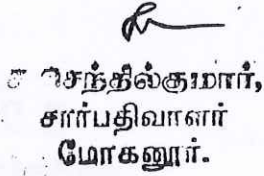 செந்தில்குமார்,
சார்பதிவாளர்
மோகனூர்.